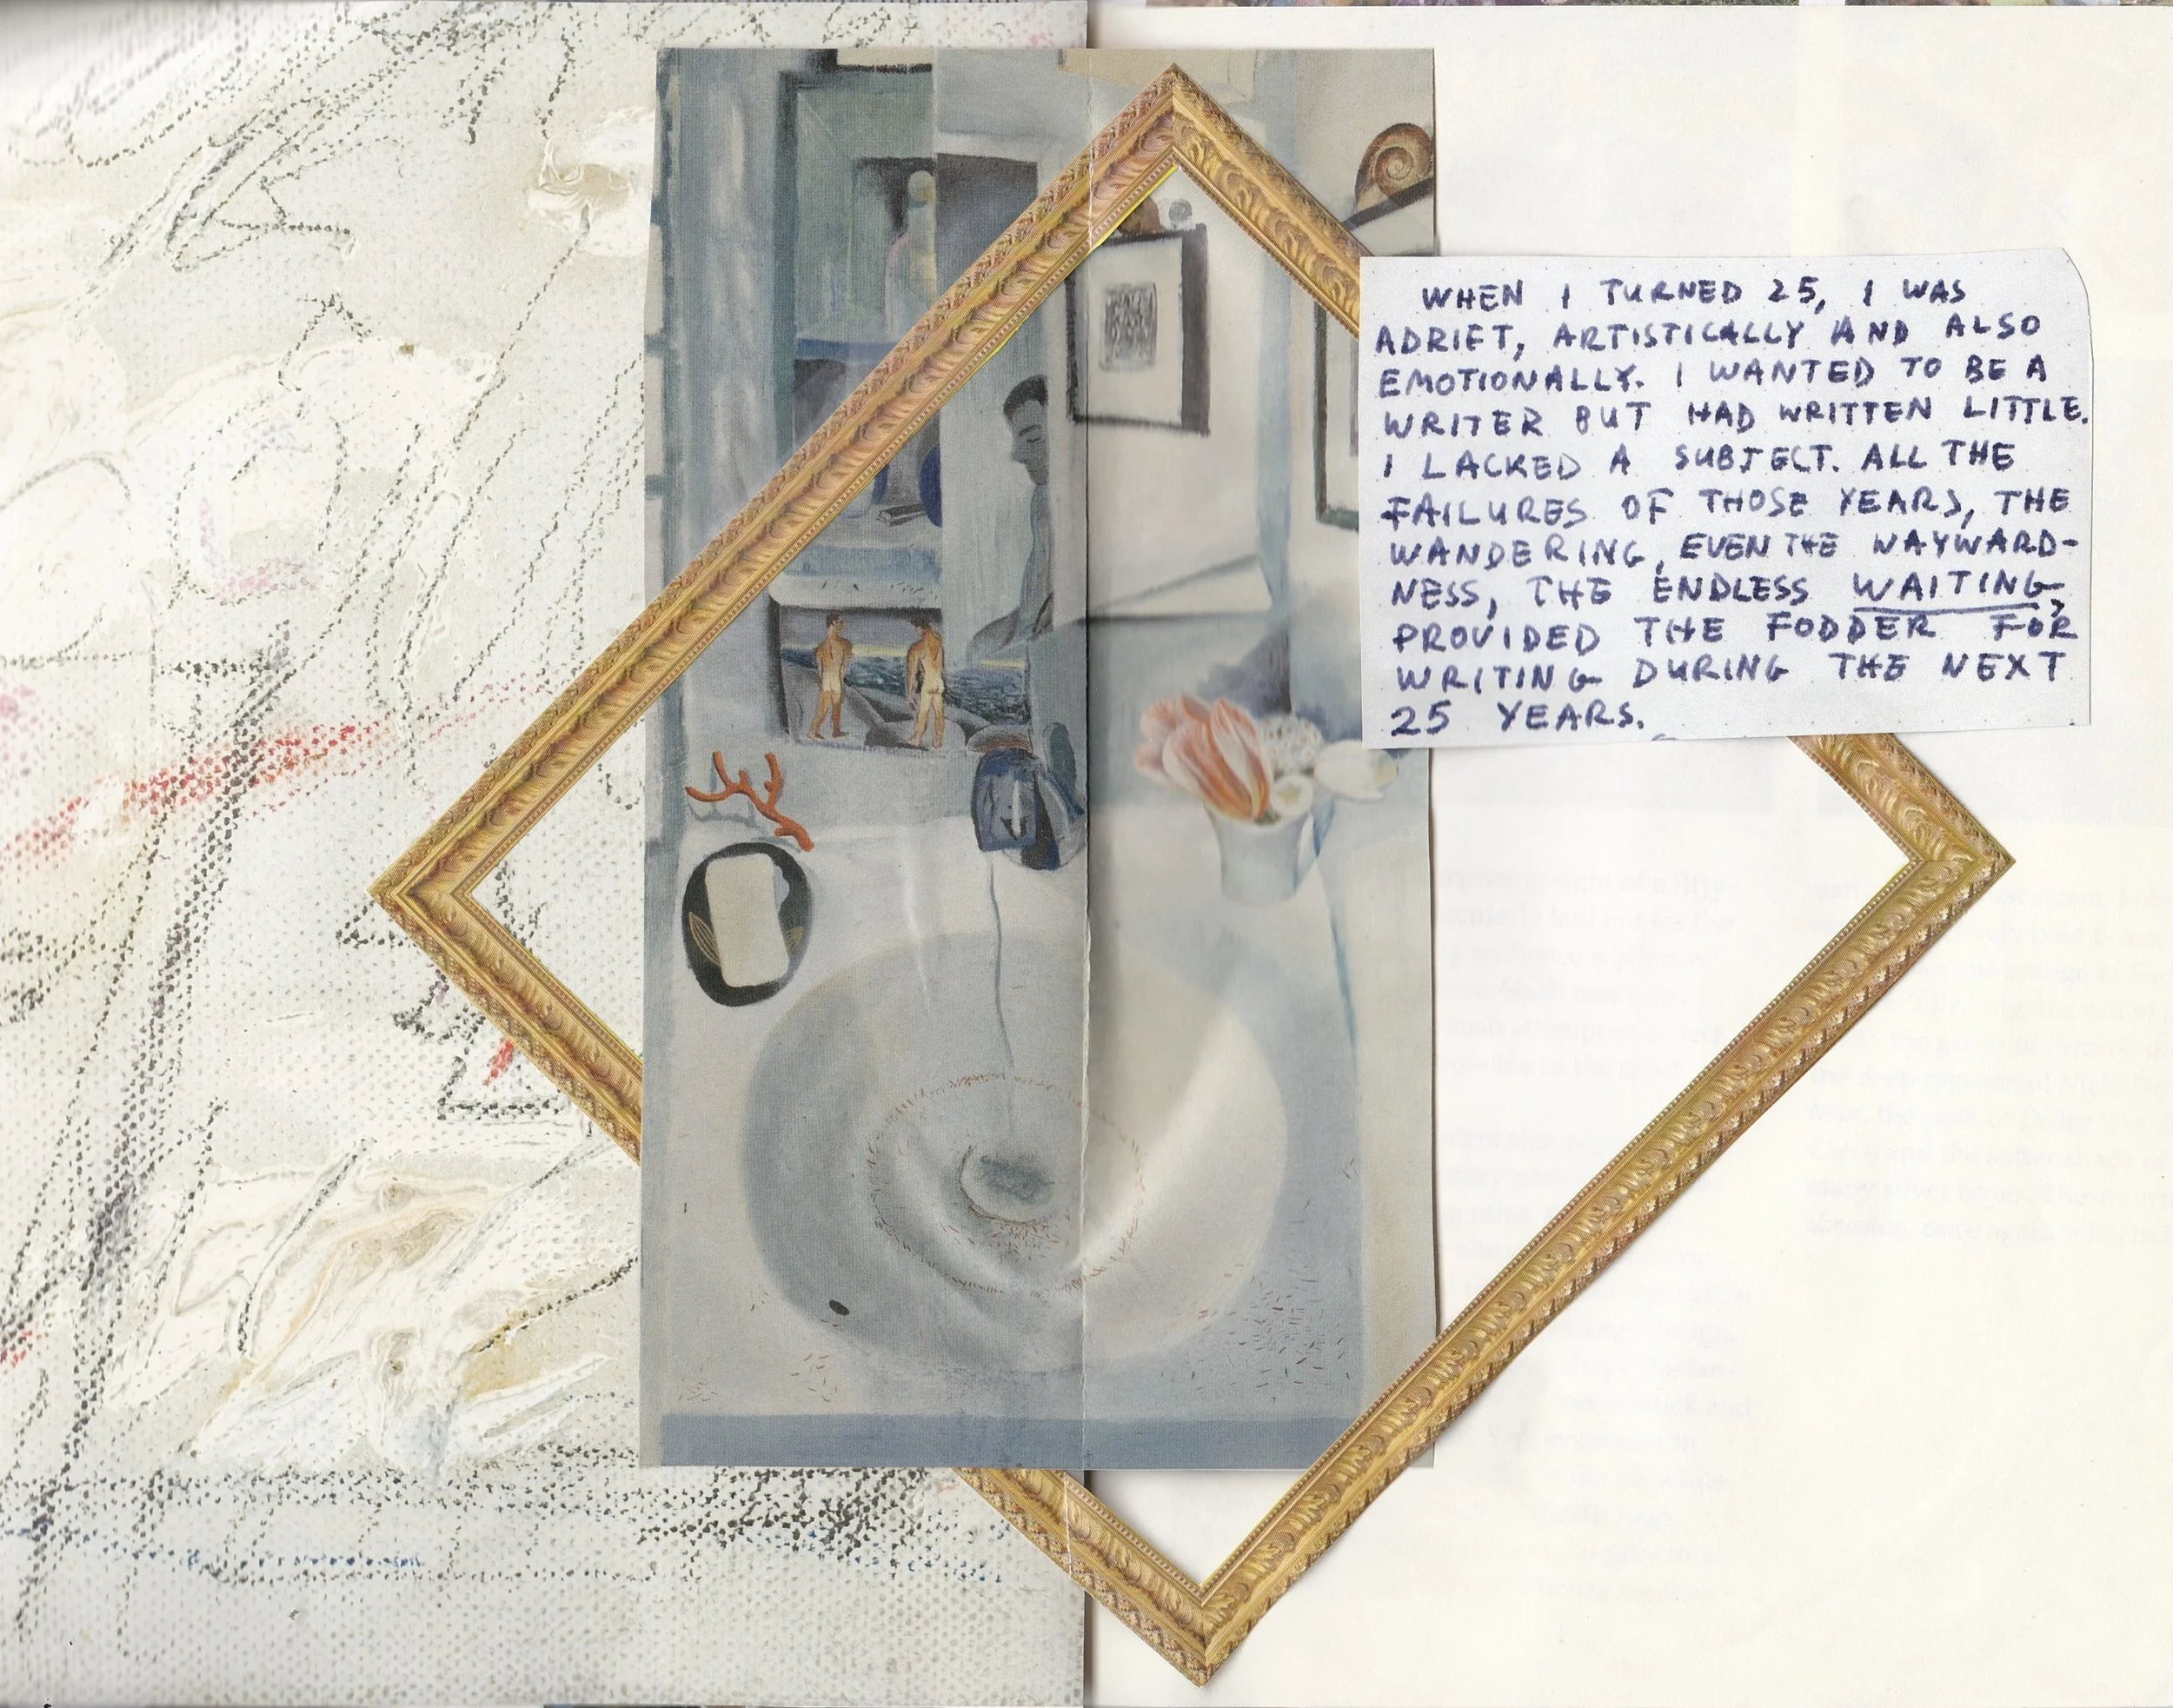 WHEN I TURNED 25, I WAS
ADRIFT, ARTISTICALLY AND ALSO
EMOTIONALLY. I WANTED TO BE A
WRITER BUT HAD WRITTEN LITTLE.
I LACKED A SUBJECT. ALL THE
FAILURES OF THOSE YEARS, THE
WANDERING, EVEN THE WAYWARD-
NESS, THE ENDLESS WAITING,
PROVIDED THE FODDER FOR
WRITING DURING THE NEXT
25 YEARS.